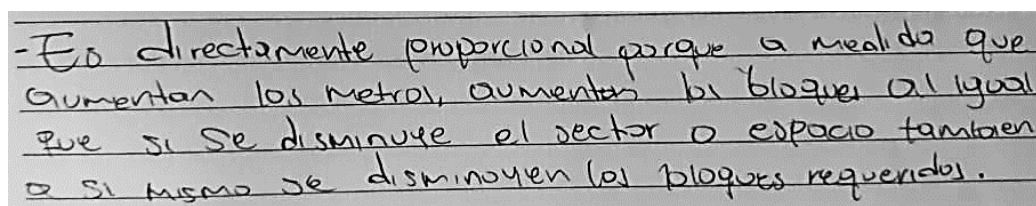 -Es directamente proporcional porque a medida que
aumentan los metros, aumentan los bloques al igual
que si se disminuye el sector o espacio tambien
a si mismo se disminuyen los bloques requeridos.